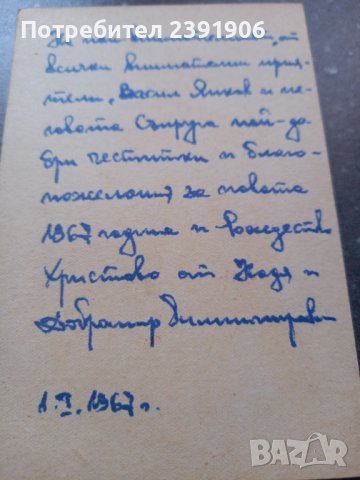 Потребител 2391906
На най внимателния, от
всички внимателни прия-
тели, Васил Янков и не-
говата Съпруга най-до-
бри честитки и благо-
пожелания за новата
1967 година и Рождество
Христово от Надя и
Добромир Димитрови
1.I.1967г.
BAZAR